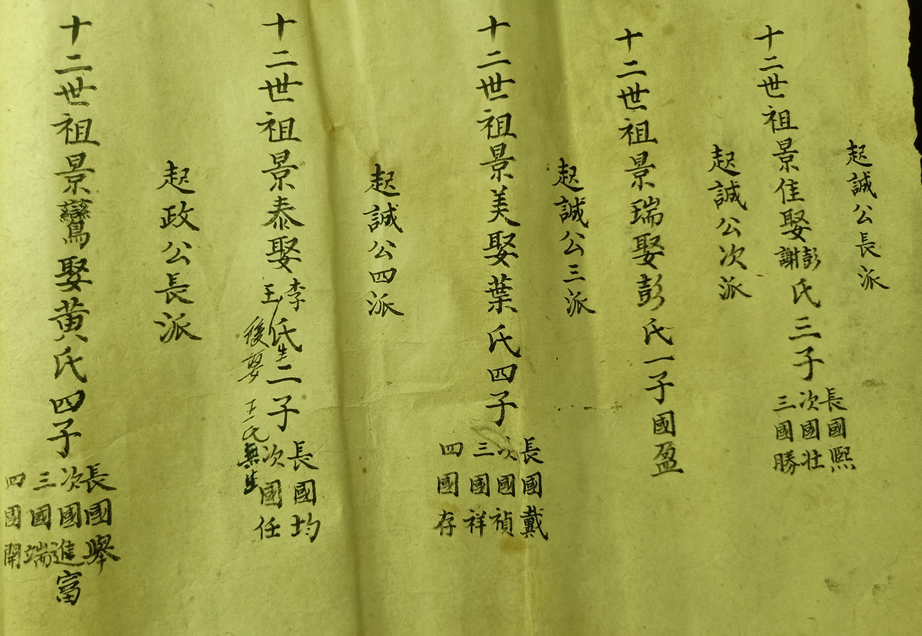 起誠公長派
十二世祖景佳娶彭謝氏三子
長國熙
次國壯
三國勝
起誠公次派
十二世祖景瑞娶彭氏一子國盈
起誠公三派
十二世祖景美娶葉氏四子
長國戴
次國禎
三國祥
四國存
起誠公四派
十二世祖景泰娶李王氏生二子
長國均
次國任
後娶王氏無生
起政公長派
十二世祖景鸞娶黃氏四子
長國舉
次國進富
三國端
四國開